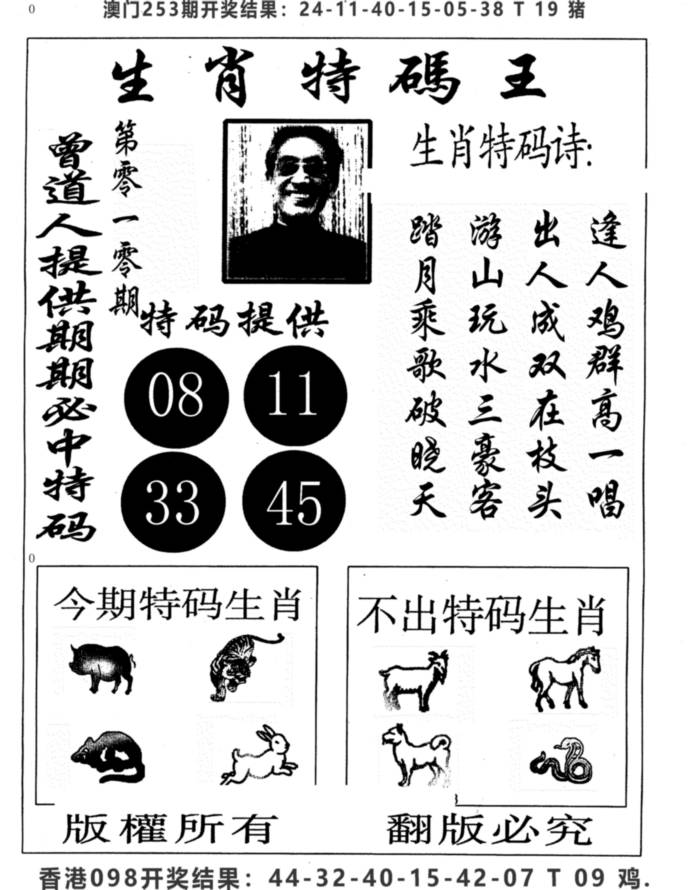 0
澳门253期开奖结果：24-11-40-15-05-38 T 19 猪
生肖特碼王
曾道人提供期期必中特码
第零一零期
特码提供
08 11
33 45
生肖特码诗:
逢人鸡群高一唱
出人成双在枝头
游山玩水三豪客
踏月乘歌破晓天
0
今期特码生肖
不出特码生肖
版權所有
翻版必究
香港098开奖结果：44-32-40-15-42-07 T 09 鸡.